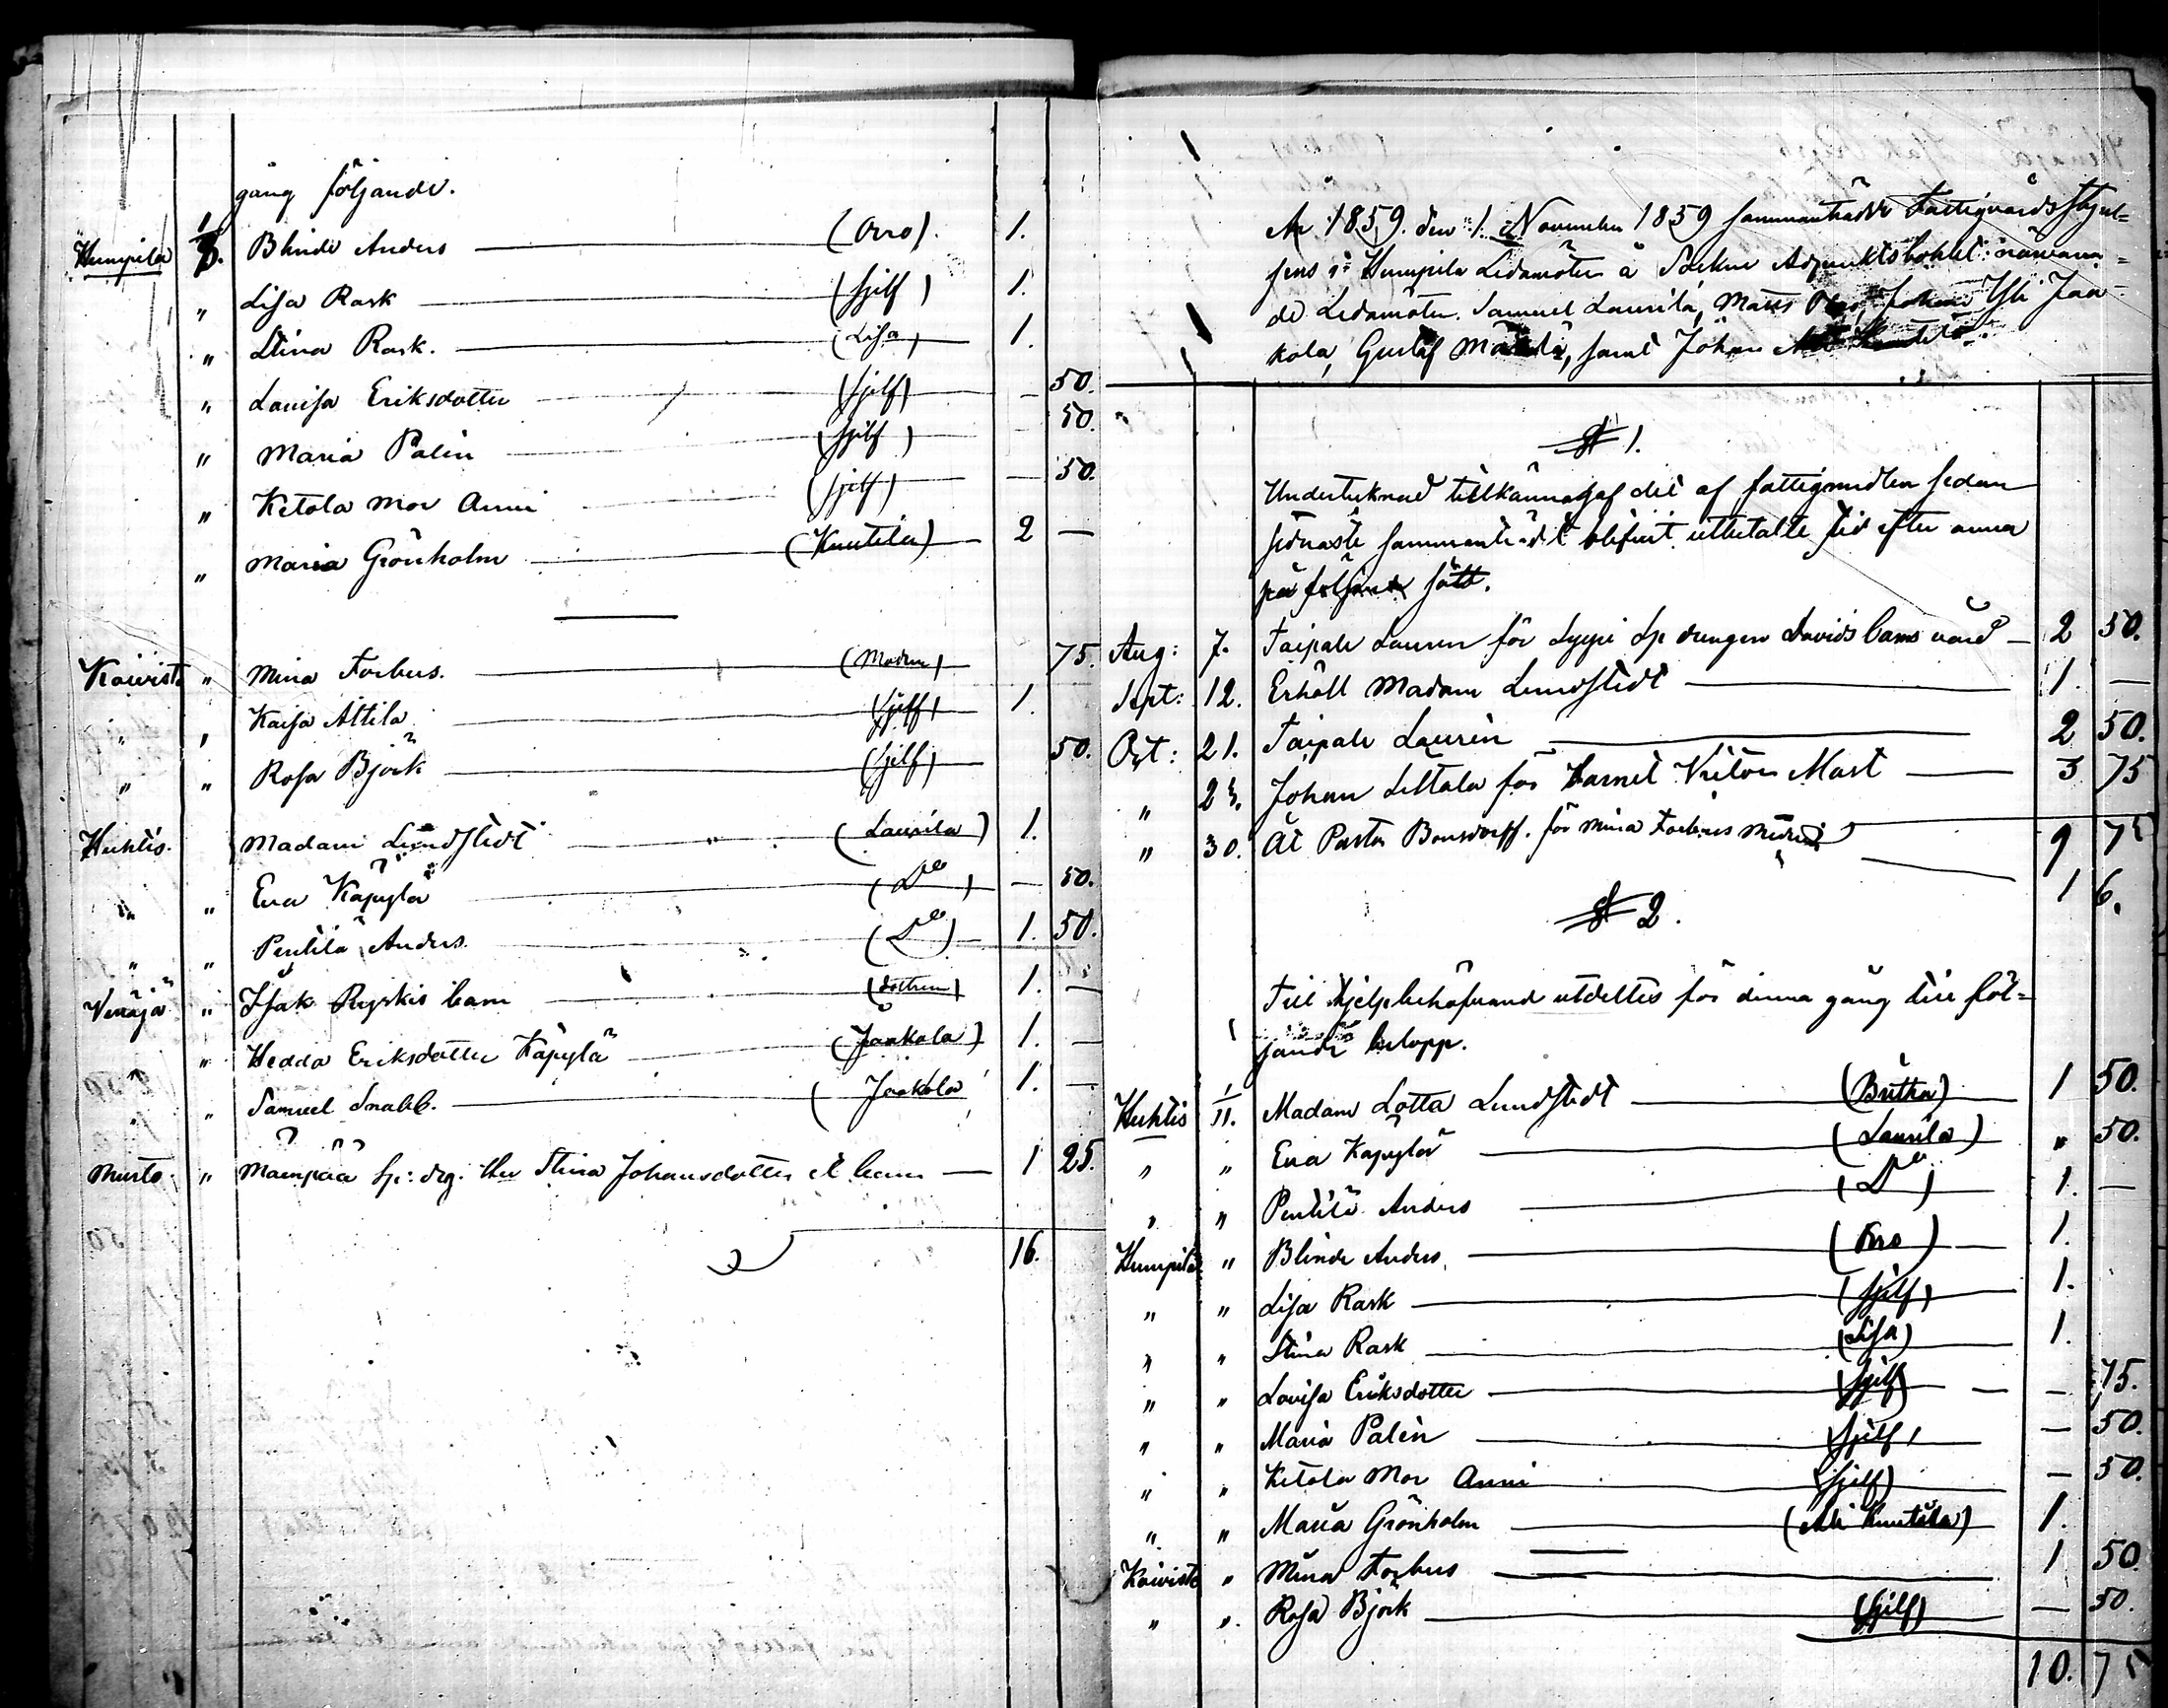 gång följande.
Humpila 1/8. Blinde Anders (Orro). 1.
" Lisa Rask (sjelf) 1.
" Stina Rask. (Lisa) 1.
" Lovisa Eriksdotter (sjelf) — 50.
" Maria Palin (sjelf) — 50.
" Ketola Mor Anni (sjelf) — 50.
" Maria Grönholm (Knutila) 2 —
Koivisto " Mina Forbus. (Modren) 75.
" " Kaisa Attila (sjelf) 1.
" " Rosa Björk (sjelf) 50.
Huhtis. Madam Lundstedt (Laurila) 1.
" " Eva Käpylä (Do) — 50.
" " Pentilä Anders. (Do) 1. 50.
Venäjä " Isak Ryskis barn (dottren) 1. —
" " Hedda Eriksdotter Käpylä (Jaakola) 1. —
" " Samuel Snabb. (Jaakola) 1. —
Murto " Mämpää sp: drg: Stina Johansdotter barn 1 25.
16.
År 1859. den 1. November 1859 sammanträdde Fattigvårds Styrel=
sens i Humpila Ledamöter å Socken Adjunktsbohlet: närvaran=
de Ledamöter. Samuel Laurila, Matts Johan Yli Jaa-
kola, Gustaf samt Johan
§ 1.
Undertecknad tillkännagaf det af fattigmedlen sedan
sednaste sammanträdet blifvit utbetalte tid efter annan
på följande sätt.
Aug: 7. Taipale Laurin för Sp drengen Davids barns vård — 2 50.
Sept: 12. Erhöll Madam Lundstedt 1. —
Oct: 21. Taipale Laurin 2 50.
" 23. Johan för barnet Mart 3 75
" 30. Åt Pastor Bonsdorff. för Mina Forbus 9 75
1 6.
§ 2.
Till hjelpbehöfvand utdeltes för denna gång till föl=
jande belopp.
Huhtis 1/11. Madam Lotta Lundstedt (Britha) 1 50.
" " Eva Käpylä (Laurila) " 50.
" " Pentilä Anders (Do) 1. —
Humpila " Blinde Anders (Orro) 1.
" " Lisa Rask (sjelf) 1.
" " Stina Rask (Lisa) 1.
" " Lovisa Eriksdotter (sjelf) — 75.
" " Maria Palin (sjelf) — 50.
" " Ketola Mor Anni (sjelf) — 50.
" " Maria Grönholm (Ali Knutila) 1.
Koivisto " Mina Forbus 1 50
" " Rosa Björk (sjelf) — 50.
10. 75